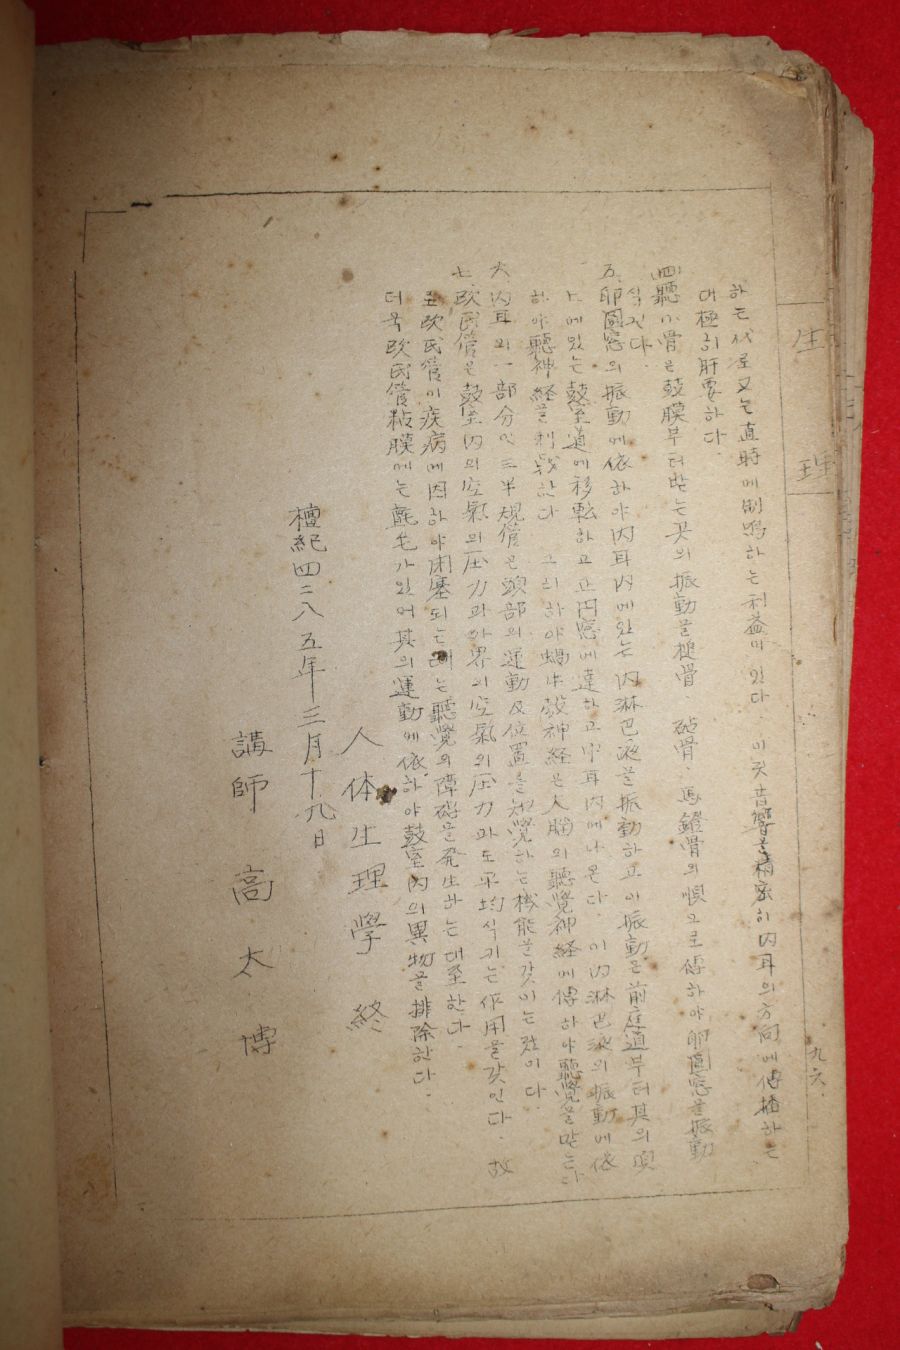 生理
九六
하는 代로 又는 直時에 制鳴하는 利益이 있다. 이것 音響을 精密히 內耳의 方向에 傳播하는
대 極히 肝要하다.
四 聽小骨은 鼓膜부터 받는 곳의 振動을 槌骨 砧骨 馬鐙骨의 順으로 傳하야 卵圓窓을 振動
식킨다.
五 卵圓窓의 振動에 依하야 內耳內에 있는 內淋巴液을 振動하고 이 振動은 前庭道부터 其의 頂
上에 있는 鼓室道에 移転하고 正円窓에 達하고 中耳內에 나온다. 이 內淋巴液의 振動에 依
하야 聽神経을 刺戟한다 그리하야 蝸牛殼神経은 大腦의 聽覺神経에 傳하야 聽覺을 맡는다
六 內耳의 一部分인 三半規管은 頭部의 運動 及 位置를 知覺하는 機能을 갖이는 것이다.
七 欧氏管은 鼓室內의 空氣의 圧力과 外界의 空氣의 圧力과도 平均식키는 作用을 갖인다. 故
로 欧氏管이 疾病에 因하야 閉塞되는 때는 聽覺의 障碍을 発生하는 대 至한다.
더욱 欧氏管 粘膜에는 氈毛가 있어 其의 運動에 依하야 鼓室內의 異物을 排除한다.
人体生理學 終
檀紀四二八五年三月十九日
講師 高太博